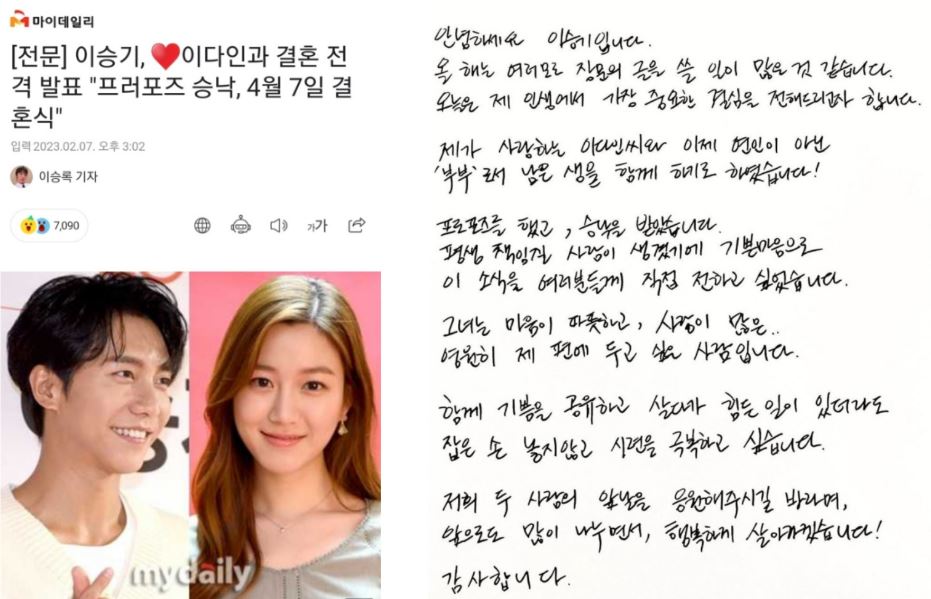 마이데일리
[전문] 이승기, ❤️이다인과 결혼 전
격 발표 "프러포즈 승낙, 4월 7일 결
혼식"
입력 2023.02.07. 오후 3:02
이승록 기자
7,090
가가
mydaily
안녕하세요 이승기입니다.
올 해는 여러모로 장문의 글을 쓸 일이 많은 것 같습니다.
오늘은 제 인생에서 가장 중요한 결심을 전해드리고자 합니다.
제가 사랑하는 이다인씨와 이제 연인이 아닌
'부부'로서 남은 생을 함께 하기로 하였습니다!
프로포즈를 했고, 승낙을 받았습니다.
평생 책임질 사람이 생겼기에 기쁜마음으로
이 소식을 여러분들께 직접 전하고 싶었습니다.
그녀는 마음이 따뜻하고, 사랑이 많은..
영원히 제 편에 두고 싶은 사람입니다.
함께 기쁨을 공유하고 살다가 힘든 일이 있더라도
잡은 손 놓지않고 시련을 극복하고 싶습니다.
저희 두 사람의 앞날을 응원해주시길 바라며,
앞으로도 많이 나누면서, 행복하게 살아가겠습니다!
감사합니다.